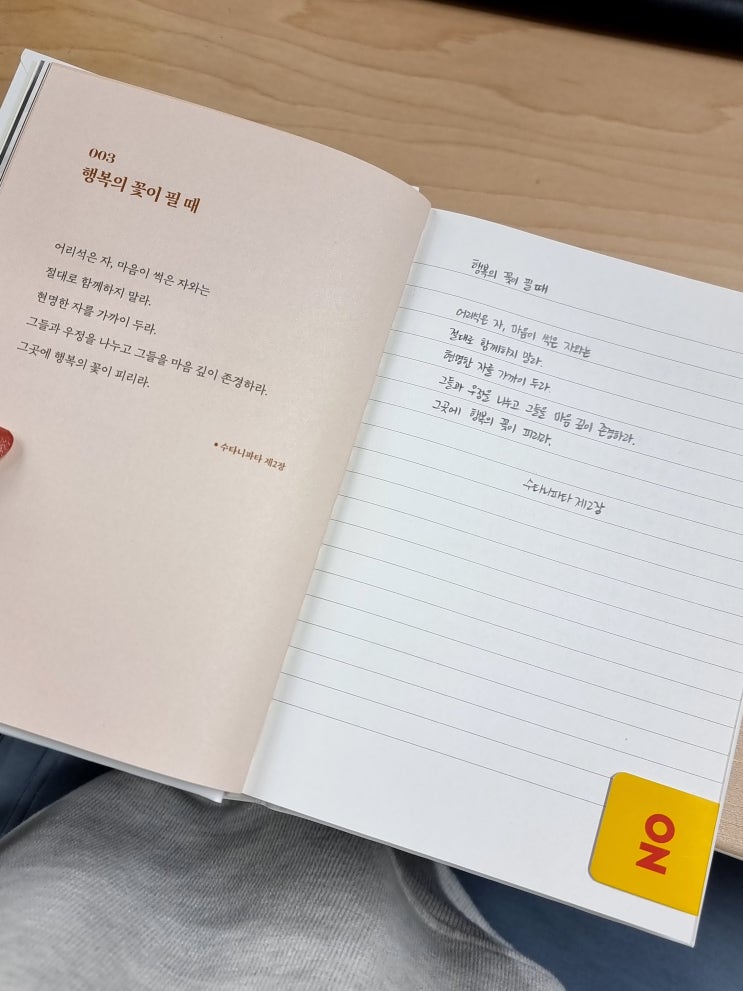 003
행복의 꽃이 필 때
어리석은 자, 마음이 썩은 자와는
절대로 함께하지 말라.
현명한 자를 가까이 두라.
그들과 우정을 나누고 그들을 마음 깊이 존경하라.
그곳에 행복의 꽃이 피리라.
• 수타니파타 제2장
행복의 꽃이 필 때
어리석은 자, 마음이 썩은 자와는
절대로 함께하지 말라.
현명한 자를 가까이 두라.
그들과 우정을 나누고 그들을 마음 깊이 존경하라.
그곳에 행복의 꽃이 피리라.
수타니파타 제2장
NO